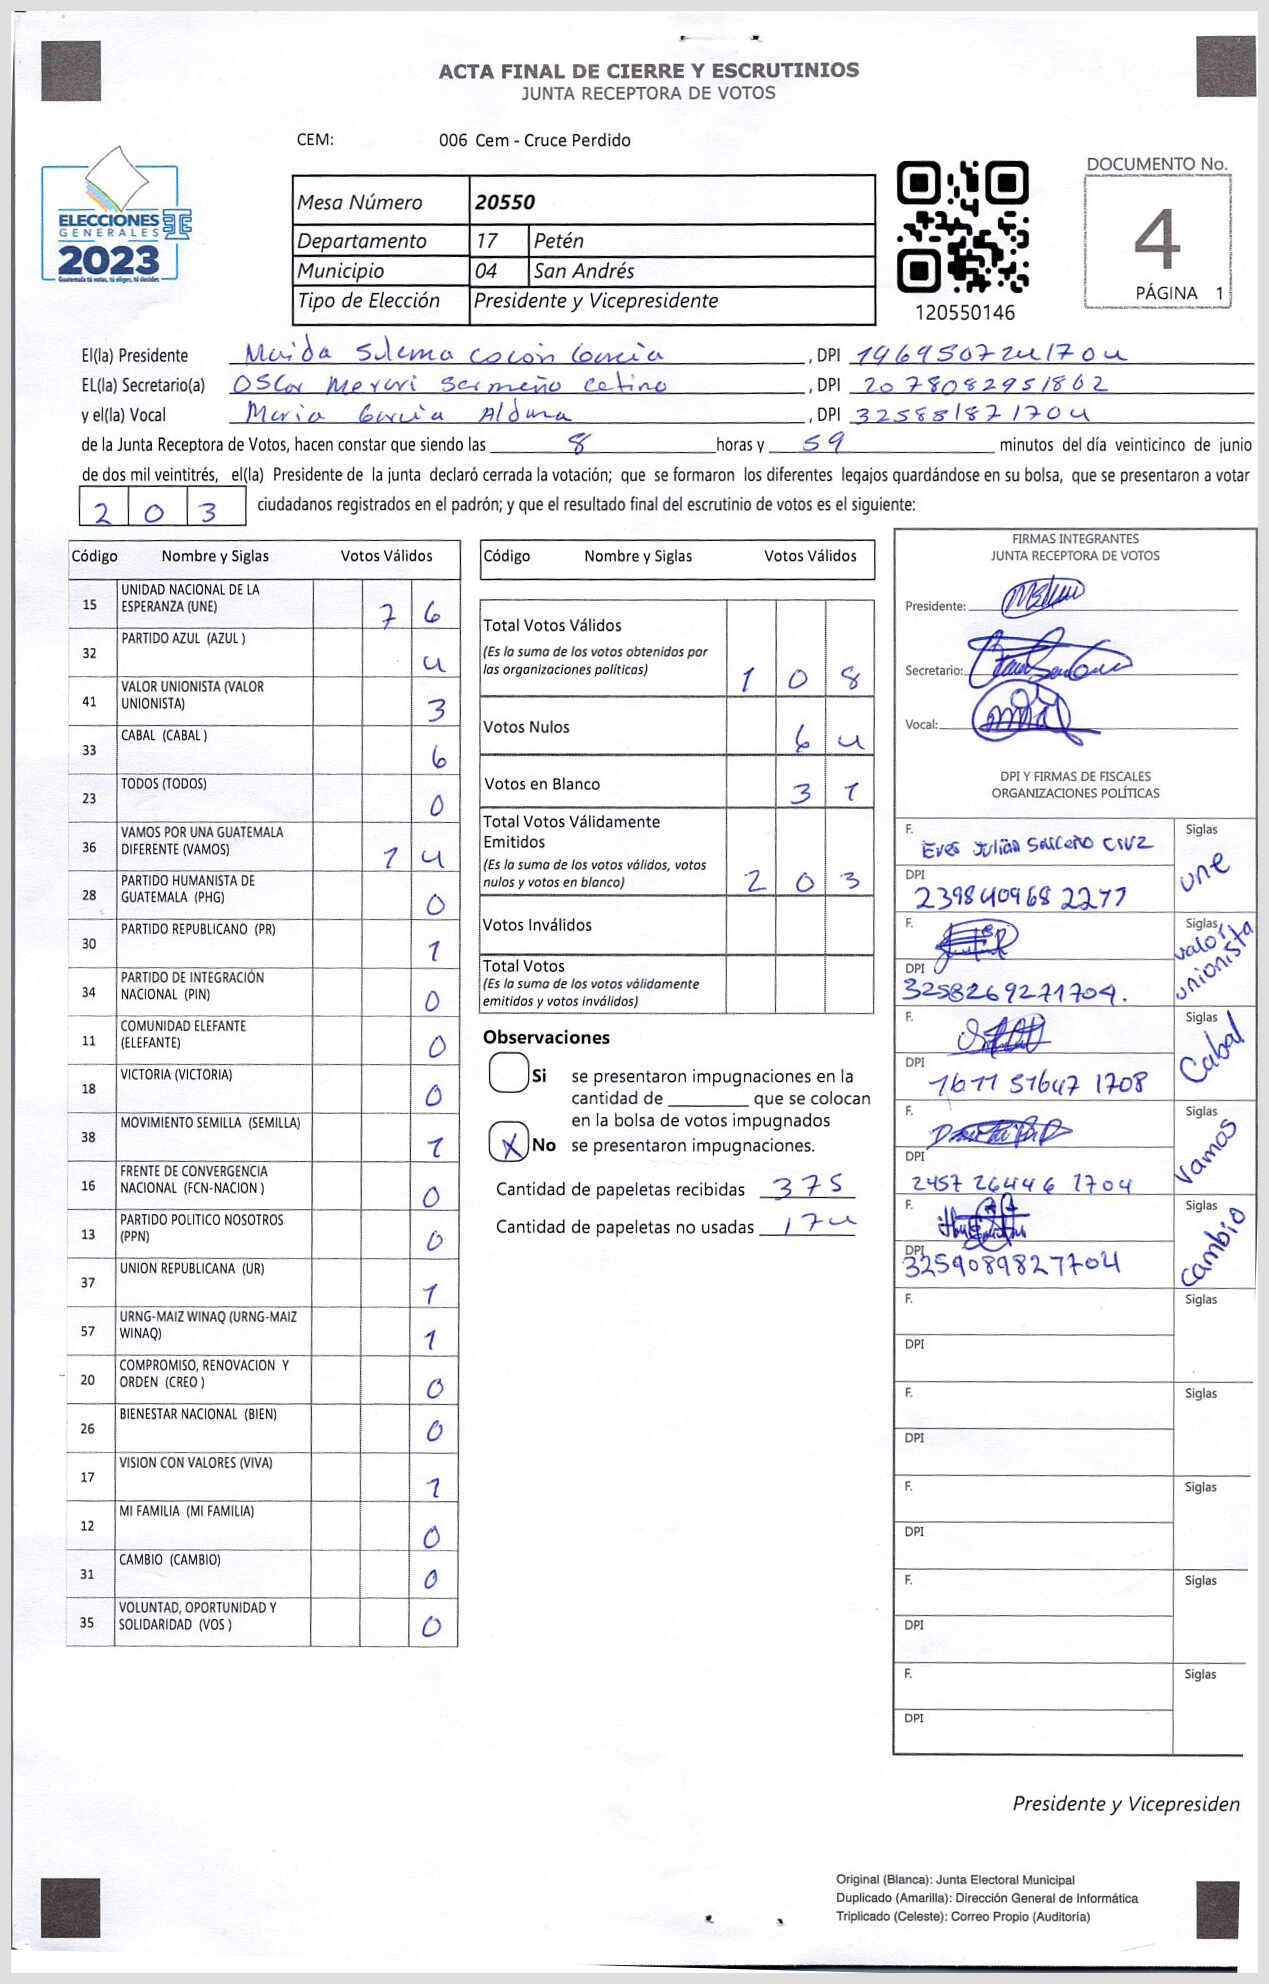 ACTA FINAL DE CIERRE Y ESCRUTINIOS
JUNTA RECEPTORA DE VOTOS
CEM: 006 Cem - Cruce Perdido
ELECCIONES
GENERALES
2023
Guatemala tú votas, tú eliges, tú decides
Mesa Número 20550
Departamento 17 Petén
Municipio 04 San Andrés
Tipo de Elección Presidente y Vicepresidente
120550146
DOCUMENTO No.
4
PÁGINA 1
El(la) Presidente Maida Sulema Cocón García, DPI 1969507241704
EL(la) Secretario(a) Oscar Merari Sarmeño Cetino, DPI 2078082951802
y el(la) Vocal Maria García Aldana, DPI 325881871704
de la Junta Receptora de Votos, hacen constar que siendo las 8 horas y 59 minutos del día veinticinco de junio
de dos mil veintitrés, el(la) Presidente de la junta declaró cerrada la votación; que se formaron los diferentes legajos guardándose en su bolsa, que se presentaron a votar
203 ciudadanos registrados en el padrón; y que el resultado final del escrutinio de votos es el siguiente:
Código Nombre y Siglas Votos Válidos
15 UNIDAD NACIONAL DE LA
ESPERANZA (UNE) 76
32 PARTIDO AZUL (AZUL ) 4
41 VALOR UNIONISTA (VALOR
UNIONISTA) 3
33 CABAL (CABAL ) 6
23 TODOS (TODOS) 0
36 VAMOS POR UNA GUATEMALA
DIFERENTE (VAMOS) 14
28 PARTIDO HUMANISTA DE
GUATEMALA (PHG) 0
30 PARTIDO REPUBLICANO (PR) 1
34 PARTIDO DE INTEGRACIÓN
NACIONAL (PIN) 0
11 COMUNIDAD ELEFANTE
(ELEFANTE) 0
18 VICTORIA (VICTORIA) 0
38 MOVIMIENTO SEMILLA (SEMILLA) 1
16 FRENTE DE CONVERGENCIA
NACIONAL (FCN-NACION ) 0
13 PARTIDO POLITICO NOSOTROS
(PPN) 0
37 UNION REPUBLICANA (UR) 1
57 URNG-MAIZ WINAQ (URNG-MAIZ
WINAQ) 1
20 COMPROMISO, RENOVACION Y
ORDEN (CREO ) 0
26 BIENESTAR NACIONAL (BIEN) 0
17 VISION CON VALORES (VIVA) 1
12 MI FAMILIA (MI FAMILIA) 0
31 CAMBIO (CAMBIO) 0
35 VOLUNTAD, OPORTUNIDAD Y
SOLIDARIDAD (VOS ) 0
Código Nombre y Siglas Votos Válidos
Total Votos Válidos
(Es la suma de los votos obtenidos por
las organizaciones políticas) 108
Votos Nulos 64
Votos en Blanco 31
Total Votos Válidamente
Emitidos
(Es la suma de los votos válidos, votos
nulos y votos en blanco) 203
Votos Inválidos
Total Votos
(Es la suma de los votos válidamente
emitidos y votos inválidos)
Observaciones
Si se presentaron impugnaciones en la
cantidad de ________ que se colocan
en la bolsa de votos impugnados
X No se presentaron impugnaciones.
Cantidad de papeletas recibidas 375
Cantidad de papeletas no usadas 174
FIRMAS INTEGRANTES
JUNTA RECEPTORA DE VOTOS
Presidente:
Secretario:
Vocal:
DPI Y FIRMAS DE FISCALES
ORGANIZACIONES POLÍTICAS
F. Siglas
DPI 239840968 2277 une
F. Siglas
DPI 3258269271704. valor unionista
F. Siglas
DPI 1611 51647 1708 Cabal
F. Siglas
DPI 2457 26446 1704 Vamos
F. Siglas
DPI 3259089827704 cambio
F. Siglas
DPI
F. Siglas
DPI
F. Siglas
DPI
F. Siglas
DPI
F. Siglas
DPI
Presidente y Vicepresiden
Original (Blanca): Junta Electoral Municipal
Duplicado (Amarilla): Dirección General de Informática
Triplicado (Celeste): Correo Propio (Auditoría)